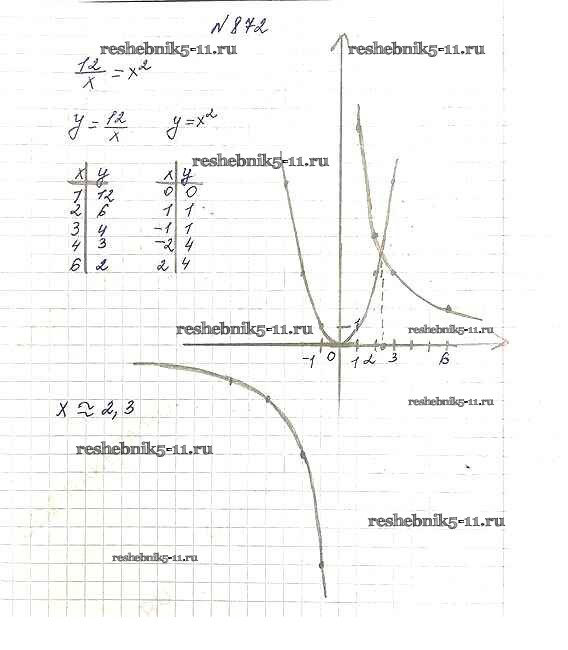 N 872
reshebnik5-11.ru reshebnik5-11.ru
12/x = x²
y = 12/x y = x²
reshebnik5-11.ru
x y x y
1 12 0 0
2 6 1 1
3 4 -1 1
4 3 -2 4
6 2 2 4
reshebnik5-11.ru 1 reshebnik5-11.ru
-1 0 1 2 3 6
reshebnik5-11.ru
x ≈ 2,3
reshebnik5-11.ru
reshebnik5-11.ru
reshebnik5-11.ru